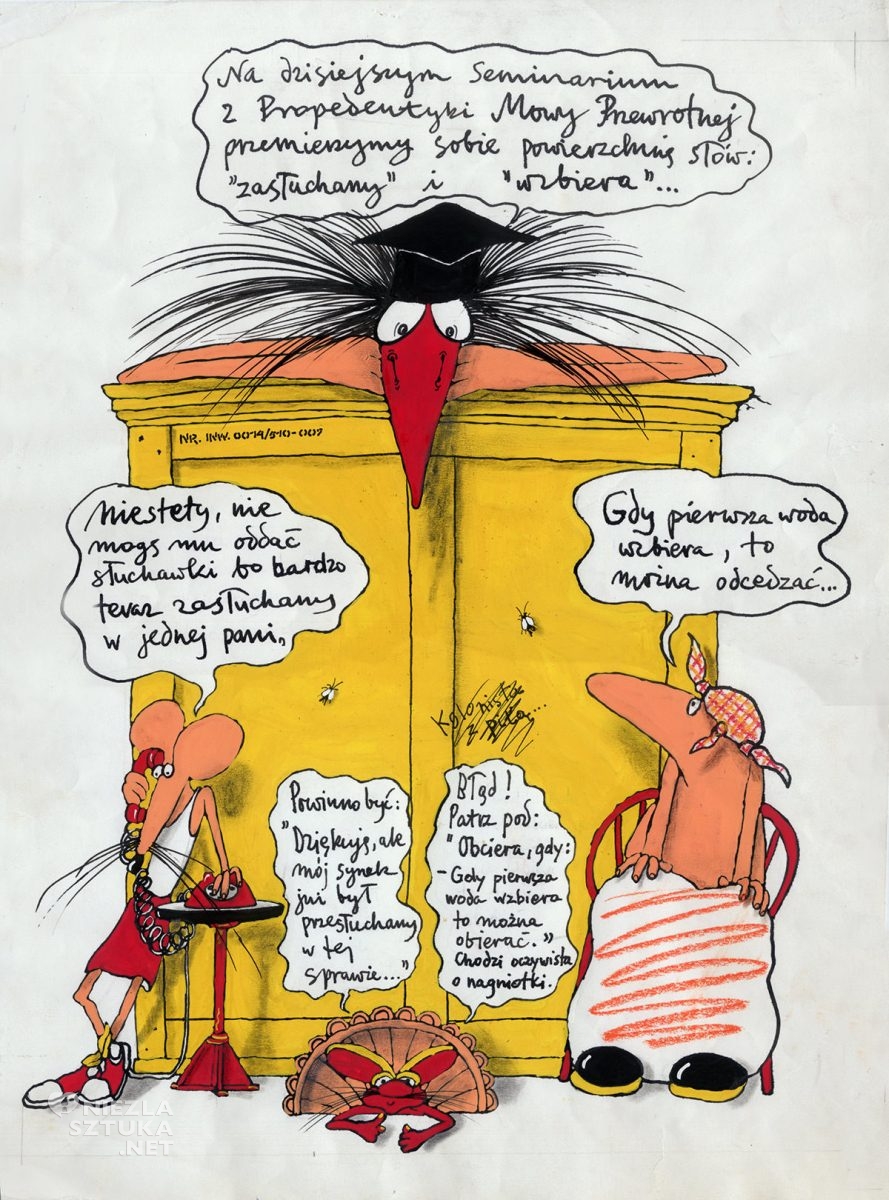 Na dzisiejszym Seminarium
z Propedeutyki Mowy Przewrotnej
przemierzymy sobie powierzchnię słów:
"zasłuchany" i "wzbiera"...
NR. INW. 0074/510-007
Niestety, nie
mogę mu oddać
słuchawki bo bardzo
teraz zasłuchany
w jednej pani„
Gdy pierwsza woda
wzbiera, to
można odcedzać...
Kolonista
z
Powinno być:
"Dziękuję, ale
mój synek
już był
przesłuchany
w tej
sprawie..."
Błąd!
Patrz pod:
"Obciera, gdy:
- Gdy pierwsza
woda wzbiera
to można
obierać."
Chodzi oczywista
o nagniotki.
NIEZŁA
SZTUKA
.NET